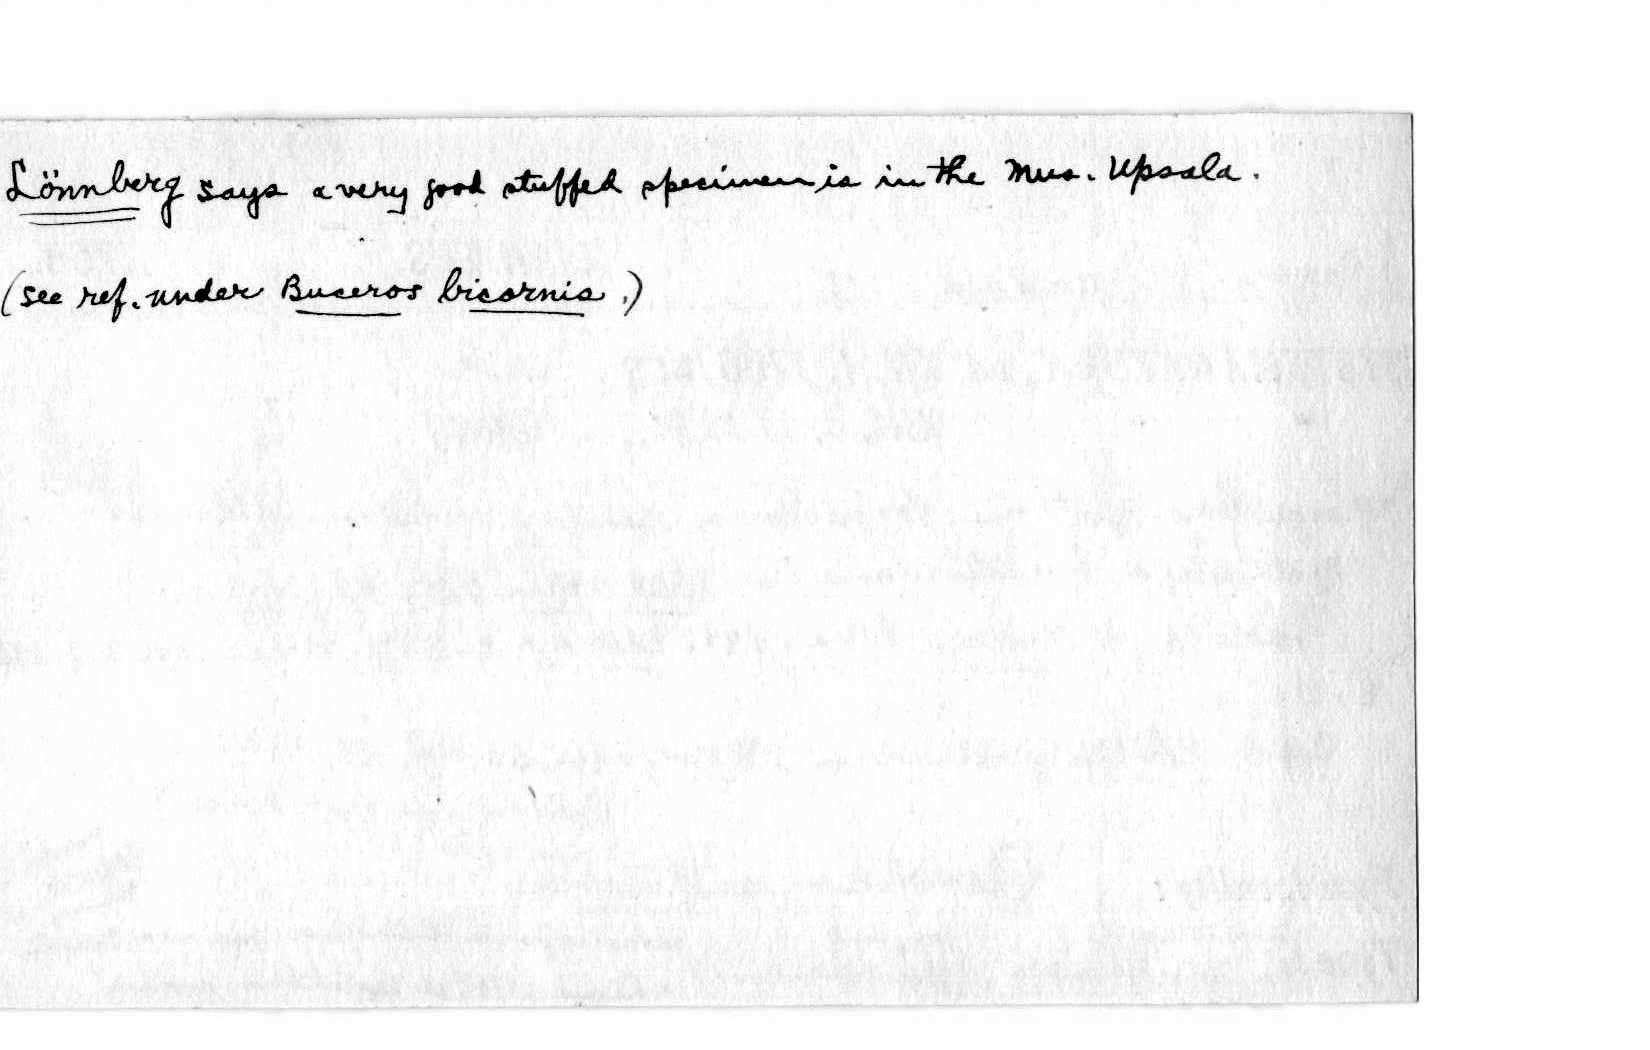 Lönnberg says a very good stuffed specimen is in the Mus. Upsala.
(see ref. under Buceros bicornis.)